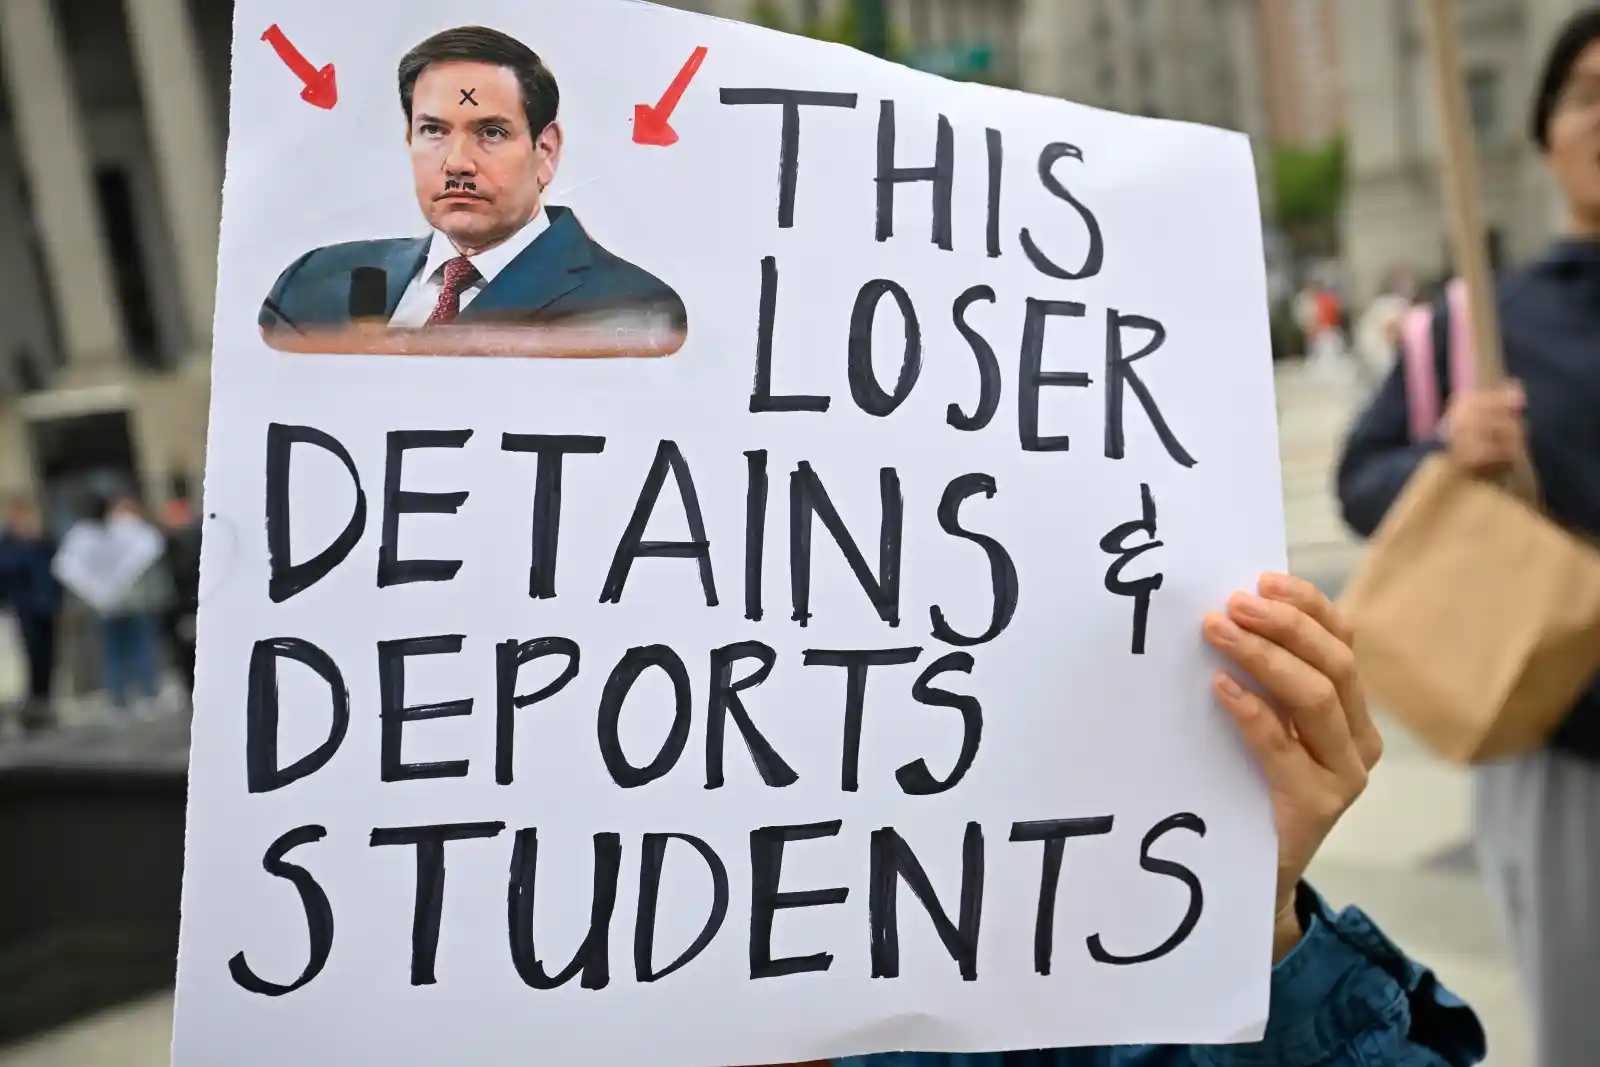 THIS
LOSER
DETAINS &
DEPORTS
STUDENTS